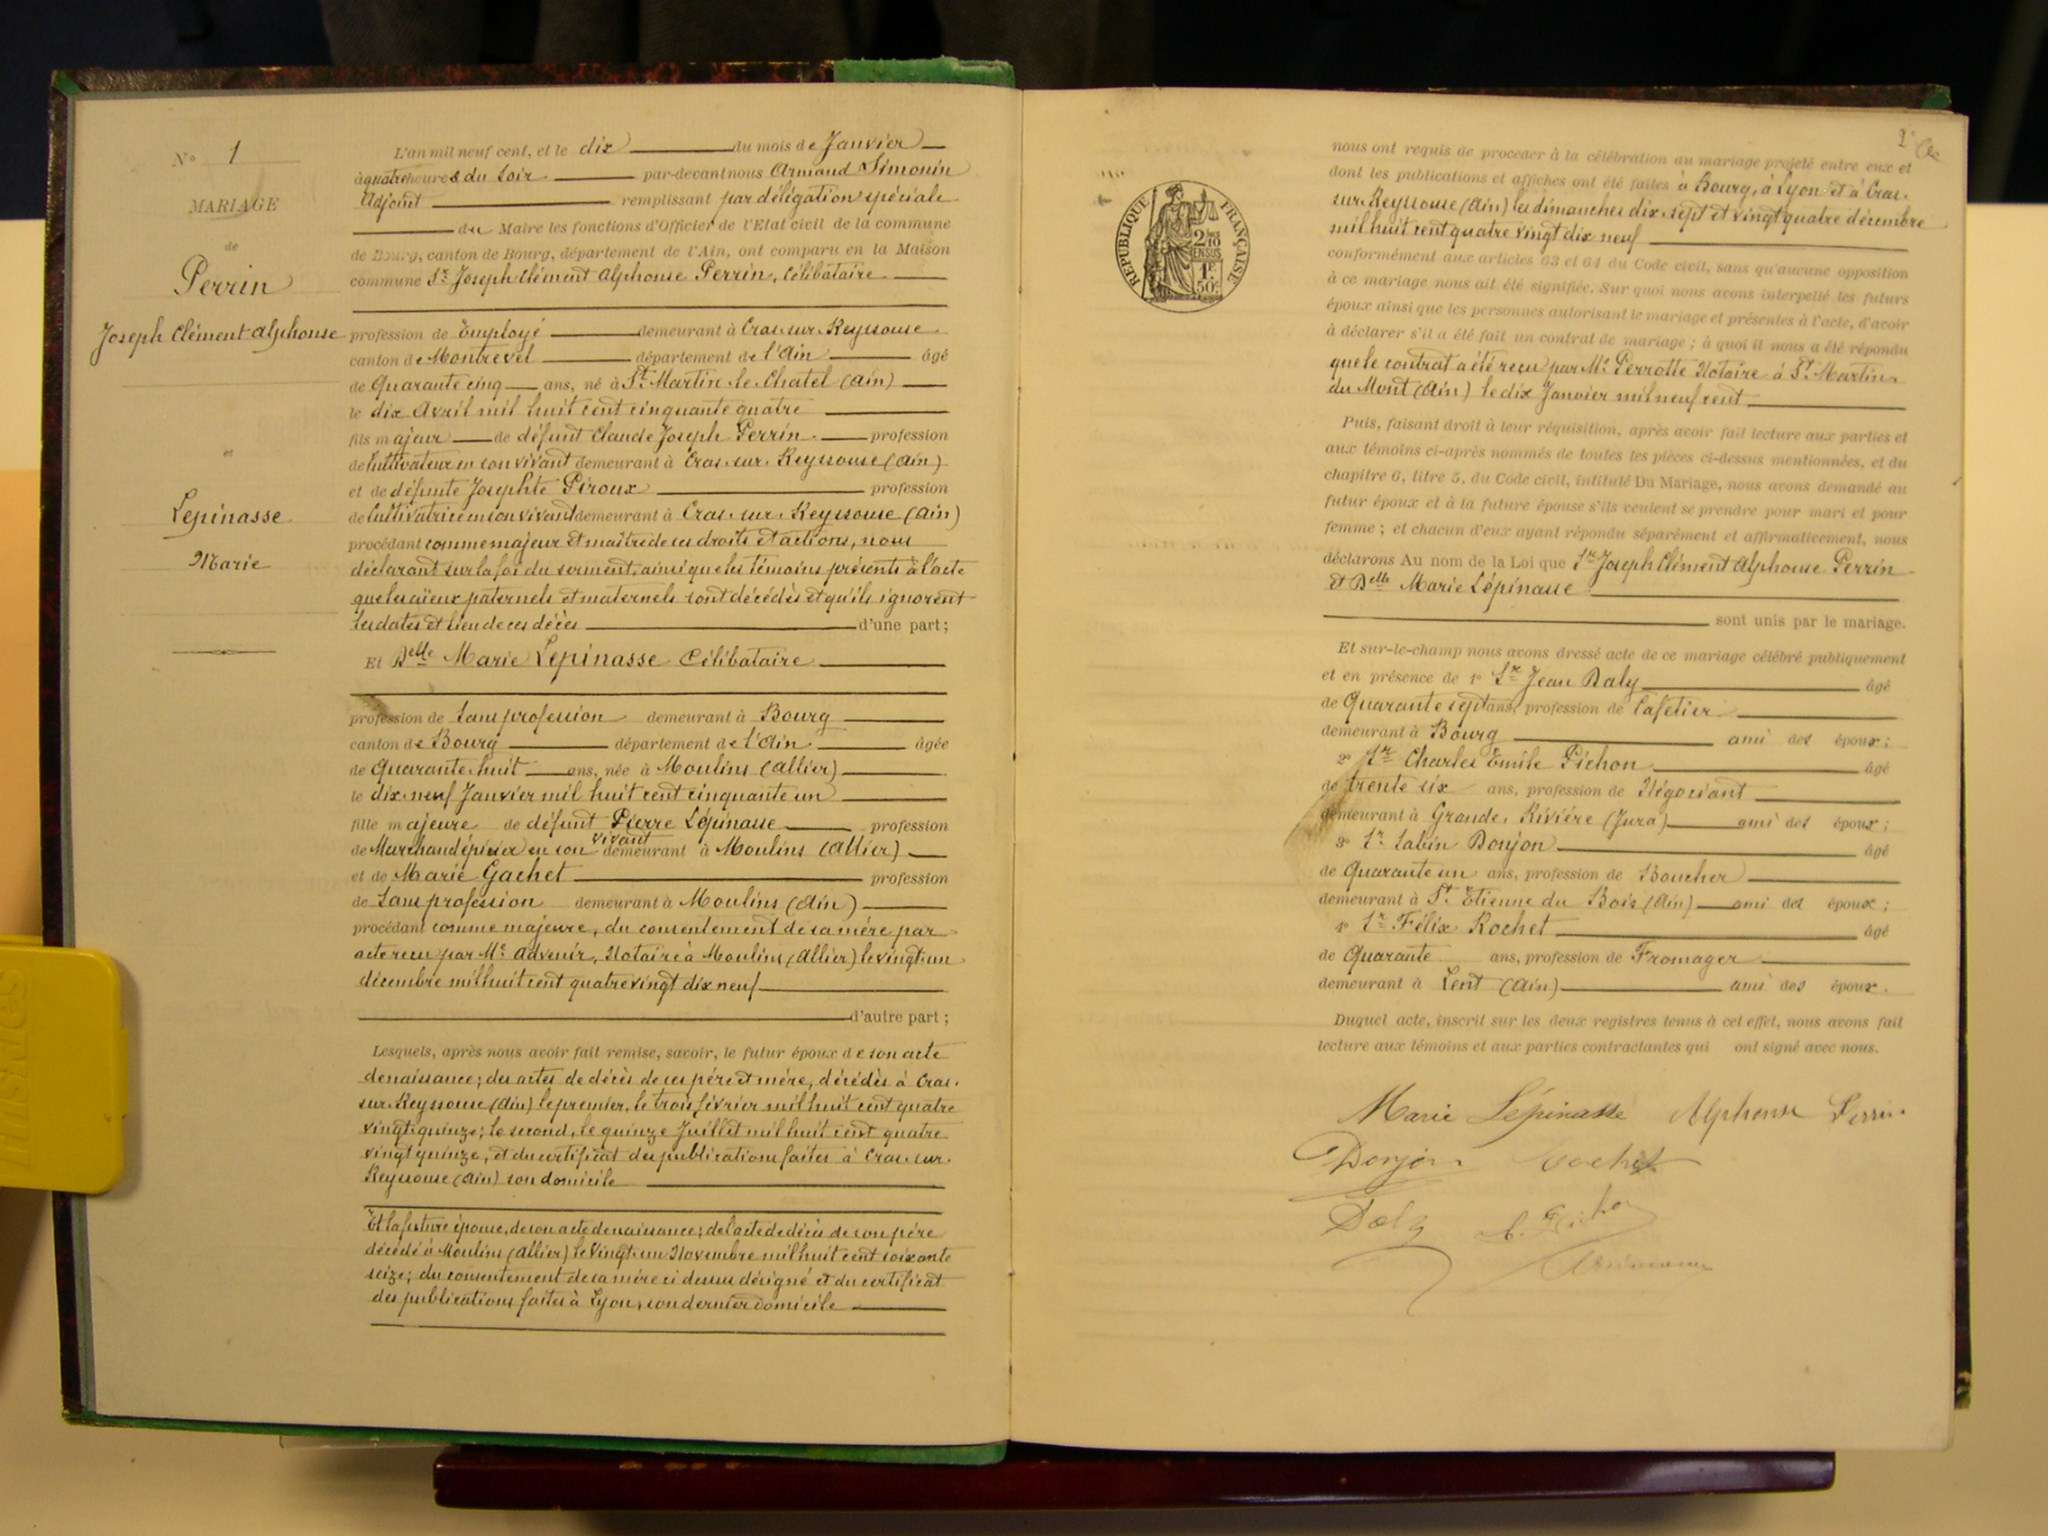 N° 1
MARIAGE
de
Perrin
Joseph Clément Alphonse
et
Lepinasse
Marie
L'an mil neuf cent, et le dix du mois de Janvier
à quatre heures du soir par-devant nous Armand Simonin
Adjoint remplissant par délégation spéciale
du Maire les fonctions d'Officier de l'Etat civil de la commune
de Bourg, canton de Bourg, département de l'Ain, ont comparu en la Maison
commune Sr Joseph Clément Alphonse Perrin, Célibataire
profession de Employé demeurant à Cras-sur-Reyssouse
canton de Montrevel département de l'Ain âgé
de Quarante cinq ans, né à St Martin-le-Chatel (Ain)
le dix Avril mil huit cent cinquante quatre
fils majeur de défunt Claude Joseph Perrin profession
de Cultivateur en son vivant demeurant à Cras-sur-Reyssouse (Ain)
et de défunte Josephte Piroux profession
de Cultivatrice en son vivant demeurant à Cras-sur-Reyssouse (Ain)
procédant comme majeur et maître de ses droits et actions, nous
déclarant sur la foi du serment, ainsi que les témoins présents à l'acte
que les aïeux paternels et maternels sont décédés et qu'ils ignorent
les dates et lieu de ces décès d'une part;
Et Delle Marie Lepinasse Célibataire
profession de Sans profession demeurant à Bourg
canton de Bourg département de l'Ain âgée
de Quarante-huit ans, née à Moulins (Allier)
le dix-neuf Janvier mil huit cent cinquante un
fille majeure de défunt Pierre Lépinasse profession
de Marchand épicier en son vivant demeurant à Moulins (Allier)
et de Marie Gachet profession
de Sans profession demeurant à Moulins (Ain)
procédant comme majeure, du consentement de sa mère par
acte reçu par Me Advenir, Notaire à Moulins (Allier) le vingt-un
décembre mil huit cent quatre vingt dix neuf
d'autre part;
Lesquels, après nous avoir fait remise, savoir, le futur époux de son acte
de naissance; des actes de décès de ses père et mère, décédés à Cras-
sur-Reyssouse (Ain) le premier, le trois février mil huit cent quatre
vingt-quinze; le second, le quinze Juillet mil huit cent quatre
vingt quinze, et du certificat des publications faites à Cras-sur-
Reyssouse (Ain) son domicile
Et la future épouse, de son acte de naissance; de l'acte de décès de son père
décédé à Moulins (Allier) le Vingt-un Novembre mil huit cent soixante
seize; du consentement de sa mère ci dessus désigné et du certificat
des publications faites à Lyon, son dernier domicile
RÉPUBLIQUE FRANÇAISE
2/10
EN SUS
1F.
50c
nous ont requis de procéder à la célébration du mariage projeté entre eux et
dont les publications et affiches ont été faites à Bourg, à Lyon et à Cras-
sur-Reyssouse (Ain) les dimanches dix-sept et vingt quatre décembre
mil huit cent quatre vingt dix neuf
conformément aux articles 63 et 64 du Code civil, sans qu'aucune opposition
à ce mariage nous ait été signifiée. Sur quoi nous avons interpellé les futurs
époux ainsi que les personnes autorisant le mariage et présentes à l'acte, d'avoir
à déclarer s'il a été fait un contrat de mariage; à quoi il nous a été répondu
que le contrat a été reçu par Me Perrotte Notaire à St Martin-
du Mont (Ain) le dix Janvier mil neuf cent
Puis, faisant droit à leur réquisition, après avoir fait lecture aux parties et
aux témoins ci-après nommés de toutes les pièces ci-dessus mentionnées, et du
chapitre 6, titre 5, du Code civil, intitulé Du Mariage, nous avons demandé au
futur époux et à la future épouse s'ils veulent se prendre pour mari et pour
femme; et chacun d'eux ayant répondu séparément et affirmativement, nous
déclarons Au nom de la Loi que Sr Joseph Clément Alphonse Perrin
et Delle Marie Lépinasse
sont unis par le mariage.
Et sur-le-champ nous avons dressé acte de ce mariage célébré publiquement
et en présence de 1° Sr Jean Daly âgé
de Quarante sept ans, profession de Cafetier
demeurant à Bourg ami des époux;
2° Sr Charles Emile Pichon âgé
de trente six ans, profession de Négociant
demeurant à Grande-Rivière (Jura) ami des époux;
3° Sr Sabin Donjon âgé
de Quarante un ans, profession de Boucher
demeurant à St Etienne du Bois (Ain) ami des époux;
4° Sr Félix Rochet âgé
de Quarante ans, profession de Fromager
demeurant à Lent (Ain) ami des époux.
Duquel acte, inscrit sur les deux registres tenus à cet effet, nous avons fait
lecture aux témoins et aux parties contractantes qui ont signé avec nous.
Marie Lépinasse Alphonse Perrin
Donjon Rochet
Daly